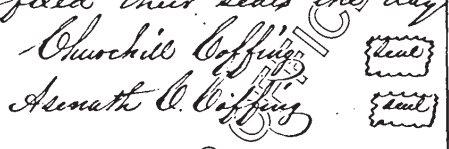 fixed their seals the day
Churchill Coffing seal
Asenath C. Coffing seal